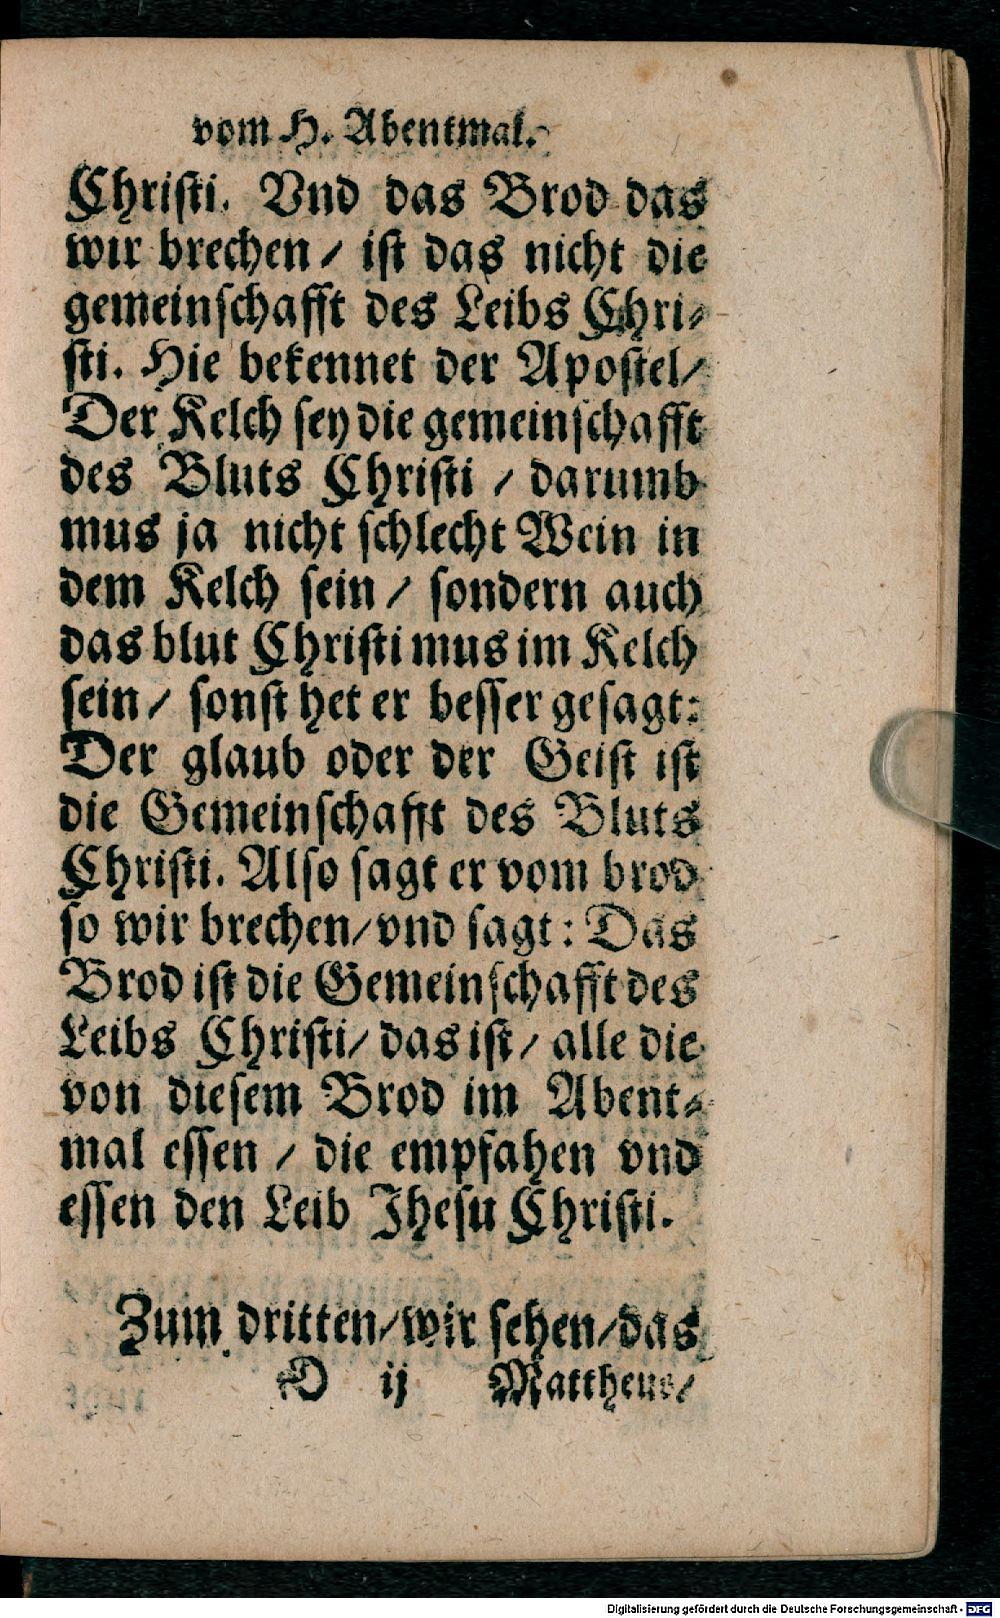 vom H. Abentmal.
Christi. Vnd das Brod das
wir brechen / ist das nicht die
gemeinschafft des Leibs Chri-
sti. Hie bekennet der Apostel/
Der Kelch sey die gemeinschafft
des Bluts Christi / darumb
mus ja nicht schlecht Wein in
dem Kelch sein / sondern auch
das blut Christi mus im Kelch
sein / sonst het er besser gesagt:
Der glaub oder der Geist ist
die Gemeinschafft des Bluts
Christi. Also sagt er vom brod
so wir brechen/vnd sagt: Das
Brod ist die Gemeinschafft des
Leibs Christi/ das ist / alle die
von diesem Brod im Abent-
mal essen / die empfahen vnd
essen den Leib Jhesu Christi.
Zum dritten/wir sehen/das
D ij Mattheus/
Digitalisierung gefördert durch die Deutsche Forschungsgemeinschaft - DFG